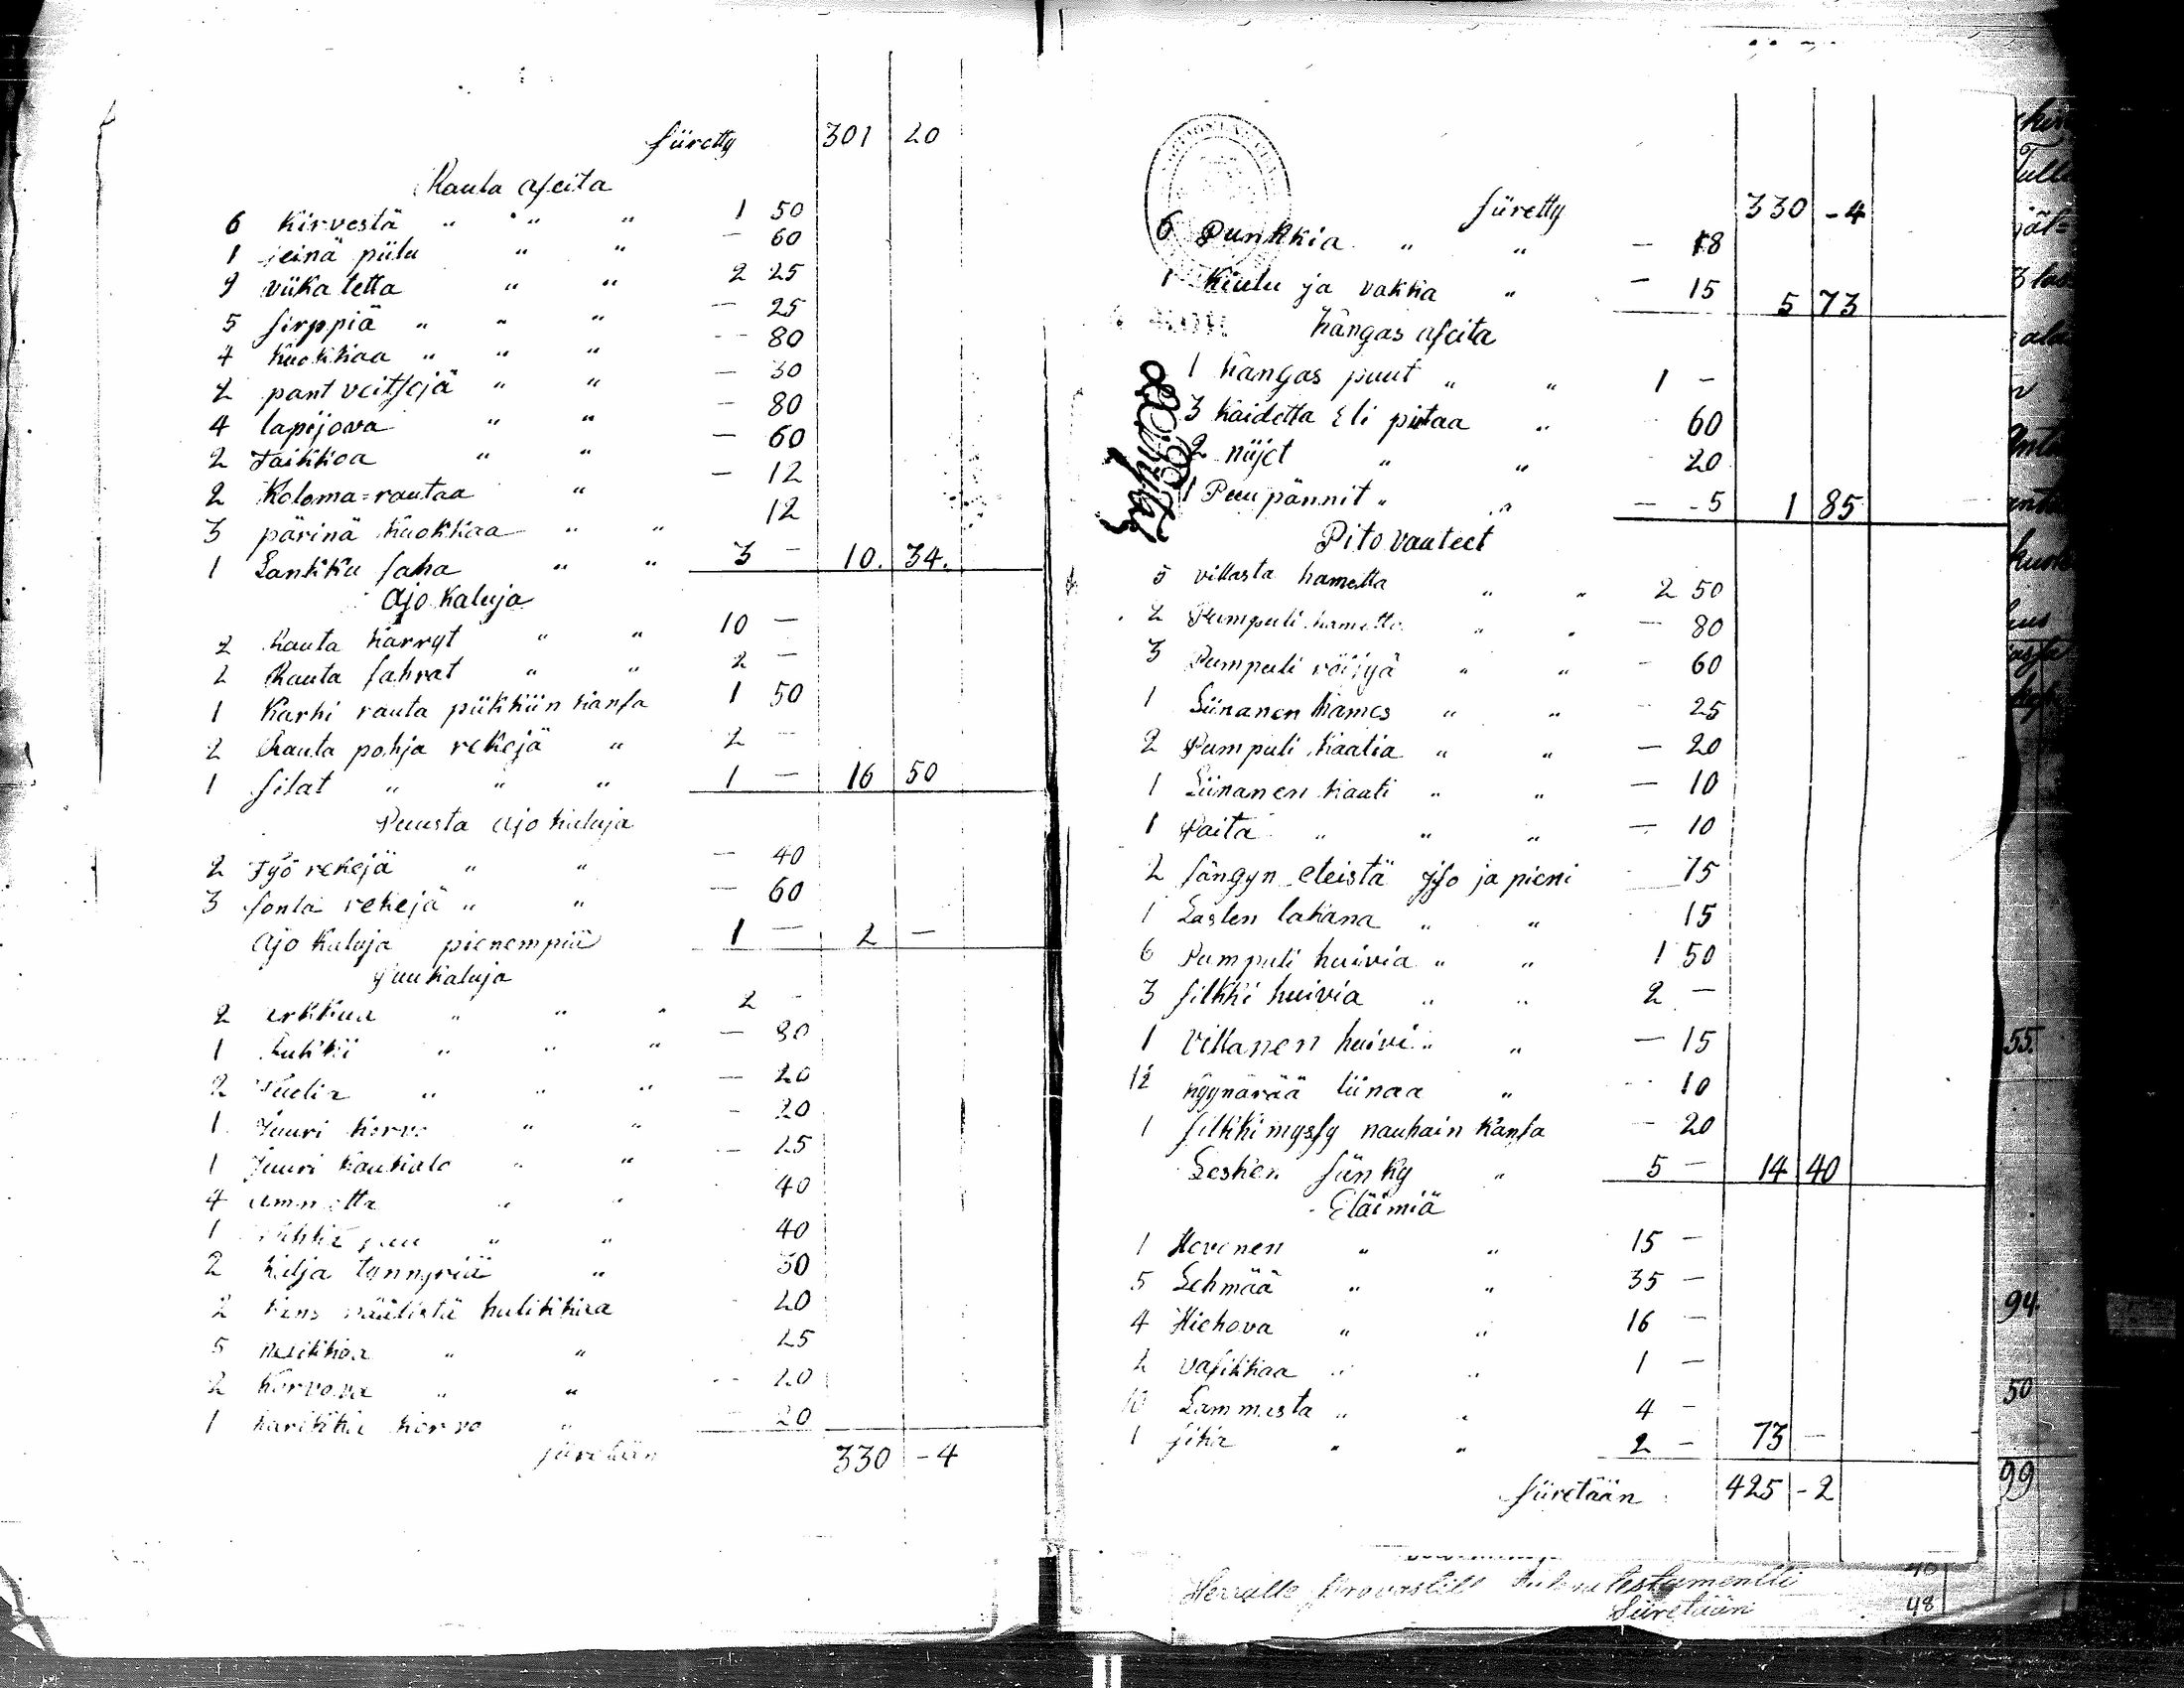 siiretty 301 20
Rauta aseita
6 Kirvestä " " " 1 50
1 heinä piilu " " — 60
9 viikatetta " " 2 25
5 sirppiä " " " — 25
4 kuokkaa " " " — 80
2 pant veitsejä " " — 30
4 lapijova " " — 80
2 Taikkoa " " — 60
2 Koloma=rautaa " — 12
3 pärinä kuokkaa " " 12
1 Lankku saha " " 3 — 10. 34.
Ajo Kaluja
2 Rauta kärryt " " 10 —
2 Rauta sahrat " " 2 —
1 Karhi rauta piikkiin kansa 1 50
2 Rauta pohja rekejä " 2 —
1 silat " " " 1 — 16 50
Puusta ajo kaluja
2 Työ rekejä " " — 40
3 sonta rekejä " " — 60
Ajo Kaluja pienempiä 1 — 2 —
Puukaluja
2 " " " 2 -
1 " " " —
2 " " " — 20
1 Juuri korvo " " - 20
1 Juuri kaukalo " " — 25
4 " " 40
1 " " 40
2 kalja tynnyriä "
2 hulikkaa 20
5 " " 25
2 Korvova " " — 20
1 korvo " 20
siiretään 330 - 4
siiretty 330 - 4
6 Punkkia " " — 18
1 Kiulu ja vakka " — 15 5 73
Kangas aseita
1 Kangas puut " " 1 —
3 Kaidetta Eli pirtaa " 60
2 niijet " " 20
1 Puupännit " " — 5 1 85
Pito vauteet
5 villasta hametta " " 2 50
2 Pumpuli hametta " " — 80
3 Pumpuli röijyä " " — 60
1 Liinanen hames " " — 25
2 Pumpuli kaatia " " — 20
1 Liinanen kaati " " — 10
1 Paita " " " — 10
2 sängyn eteistä iso ja pieni 75
1 Lasten lakana " " 15
6 Pumpuli huivia " " 1 50
3 silkki huivia " " 2 —
1 Villanen huivi " " — 15
12 kyynärää liinaa " 10
1 silkkimyssy nauhain kansa — 20
Lesken sänky " 5 — 14 40
Eläimiä
1 Hevonen " " 15 —
5 Lehmää " " 35 —
4 Hiehova " " 16 —
2 vasikkaa " " 1 —
10 Lammasta " " 4 —
1 sika " " 2 — 73 —
siiretään 425 - 2
Herralle Provastille testamentti 40
Siiretään 48
55.
94.
50
99